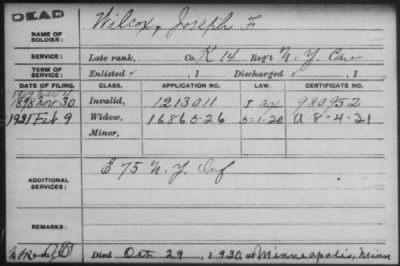 DEAD
NAME OF SOLDIER: Wilcox, Joseph F
SERVICE: Late rank, Co. K 14 Reg't N. Y. Cav
TERM OF SERVICE: Enlisted , 1 Discharged , 1
DATE OF FILING. CLASS. APPLICATION NO. LAW. CERTIFICATE NO.
1898 Nov. 30 Invalid, 1213011 980952
1921 Feb 9 Widow, 168652 5-1-20 A-8-4-21
Minor,
ADDITIONAL SERVICES: E 75 N. Y. Inf
REMARKS:
Died Oct 29, 1920 at Minneapolis, Minn